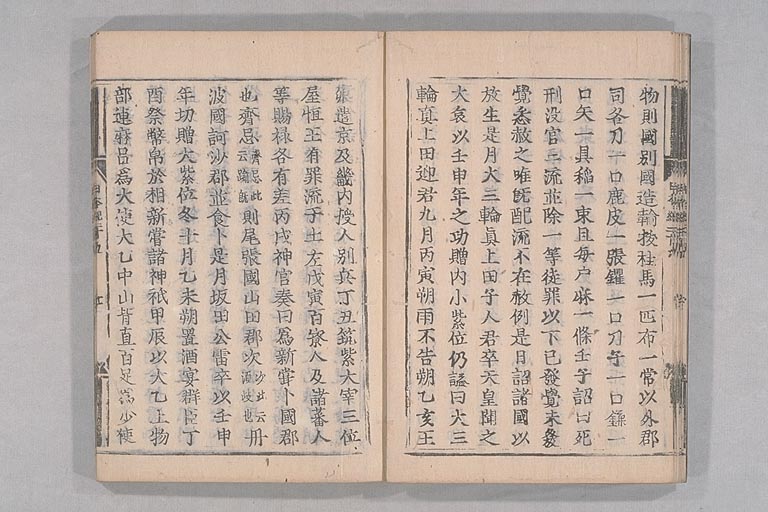 物則國別國造輸授柱馬一匹布一常以外郡
司各刀一口鹿皮一張钁一口刀子一口鎌一
口矢一具稲一束且每户麻一條壬子詔曰死
刑没官三流並除一等徒罪以下已發覺未發
覺悉赦之唯旣配流不在赦例是日詔諸國以
放生是月大三輪真上田子人君卒天皇聞之
大哀以壬申年之功贈内小紫位仍謚曰大三
輪真上田迎君九月丙寅朔雨不告朔乙亥王
卿遣京及畿内挍人別兵丁丑筑紫大宰三位
屋恒王有罪流于土左戊寅百寮人及諸蕃人
等賜禄各有差丙戌神官奏曰爲新嘗卜國郡
也齊忌 齊忌此云踰既 則尾張國山田郡次 次此云湏岐也 丹
波國訶沙郡並食卜是月坂田公雷卒以壬申
年功贈大紫位冬十月乙未朔置酒宴群臣丁
酉祭幣帛於相新嘗諸神祇甲辰以大乙上物
部連麻呂爲大使大乙中山背直百足爲少使